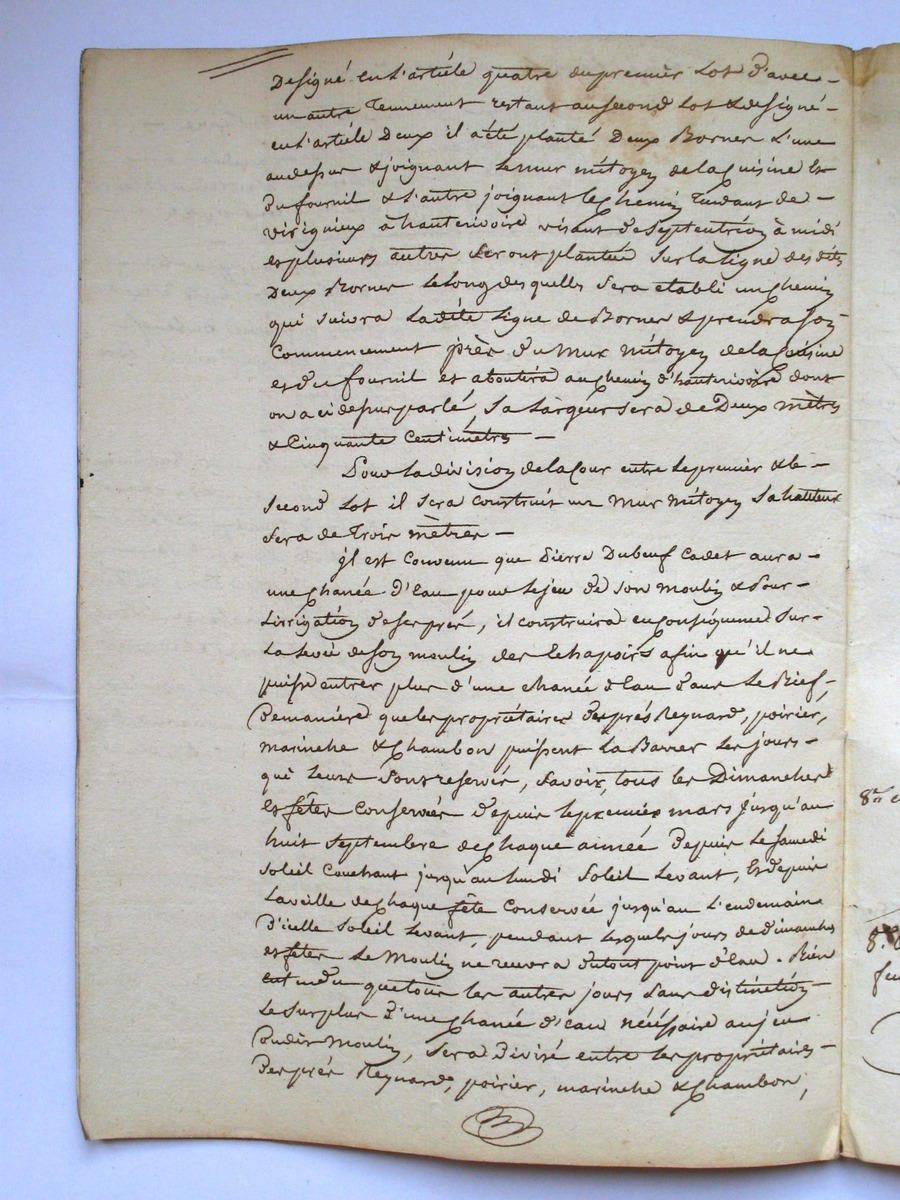 Designé en l'article quatre du premier Lot d'avec
un autre Tennement restant au second Lot & designé
en l'article Deux il a été planté Deux Bornes L'une
au dessus & joignant le mur mitoyen de la Cuisine Et
Du fournil & l'autre joignant le Chemin Tendant de
virignieux à hauterivoire visant de Septentrion à midi
et plusieurs autres Seront plantées Sur la Ligne des dites
Deux Bornes Le Long desquelles Sera etabli un Chemin
qui suivra Ladite Ligne de Bornes & prendra son
Commencement près du Mur Mitoyen de la Cuisine
et du fournil et aboutira au Chemin d'hauterivoire dont
on a ci dessus parlé, Sa Largeur sera de Deux mètres
& Cinquante Centimètres
Pour La division de la Cour entre le premier & le
Second Lot il sera construit un Mur Mitoyen Sa hauteur
Sera de Trois mètres
Il est Convenu que Pierre Dubeuf Cadet aura
une Chanée d'Eau pour le jeu de son Moulin & Pour
L'irrigation de ses prés, il construira en Conséquence Sur
La Levée de son moulin des Echapoirs afin qu'il ne
puisse entrer plus d'une chanée d'Eau dans Le Bief
De manière que les propriétaires des prés Reynard, poirier,
marinche & Chambon puissent La Barrer Les jours
qui leurs Sont reservés, Savoir, tous les Dimanches
Et fêtes Conservées depuis le premier mars jusqu'au
huit Septembre de Chaque année Depuis Le Samedi
Soleil Couchant jusqu'au lundi Soleil Levant, Et depuis
La veille de Chaque fête Conservée jusqu'au L'endemain
D'icelle Soleil Levant, pendant Lesquels jours de dimanches
et fêtes Le Moulin ne recevra du tout point d'Eau. Bien
Entendu que tous les autres jours Sans distinction
Le Surplus d'une Chanée d'eau nécessaire au jeu
Dudit Moulin, Sera Divisé entre les propriétaires
Des prés Reynard, poirier, marinche & Chambon,